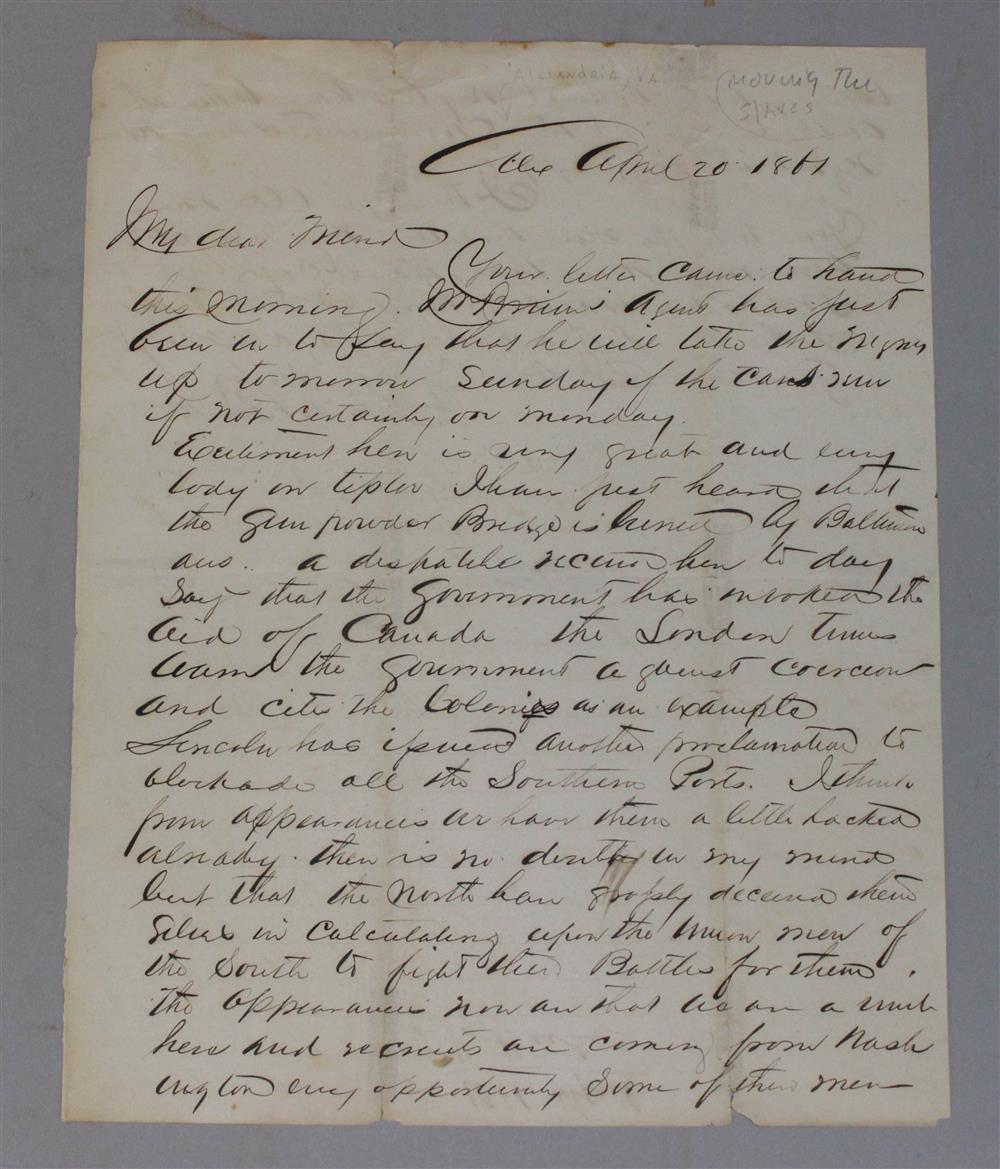 "Alexandria, Va."
Moving the
Slaves
Alex April 20 1861
My dear Friend
Your letter came to hand
this morning. Agent has just
been in to say that he will take the negroes
up to morrow Sunday if the cars run
if not certainly on monday.
Excitement here is very great and every
body on tiptoe I have just heard that
the Gun powder Bridge is burned by Baltimore
ans. a despatch received here to day
says that the Government has invoked the
aid of Canada the London times
warns the government against coercion
and cites the Colonies as an example
Lincoln has issued another proclamation to
blockade all the Southern Ports. I think
from appearances we have them a little backed
already. there is no doubt in my mind
but that the north have grossly deceived them
selves in calculating upon the Union men of
the South to fight their Battles for them.
the appearances now are that we are a unit
here and recruits are coming from Wash
ington every opportunity Some of their men